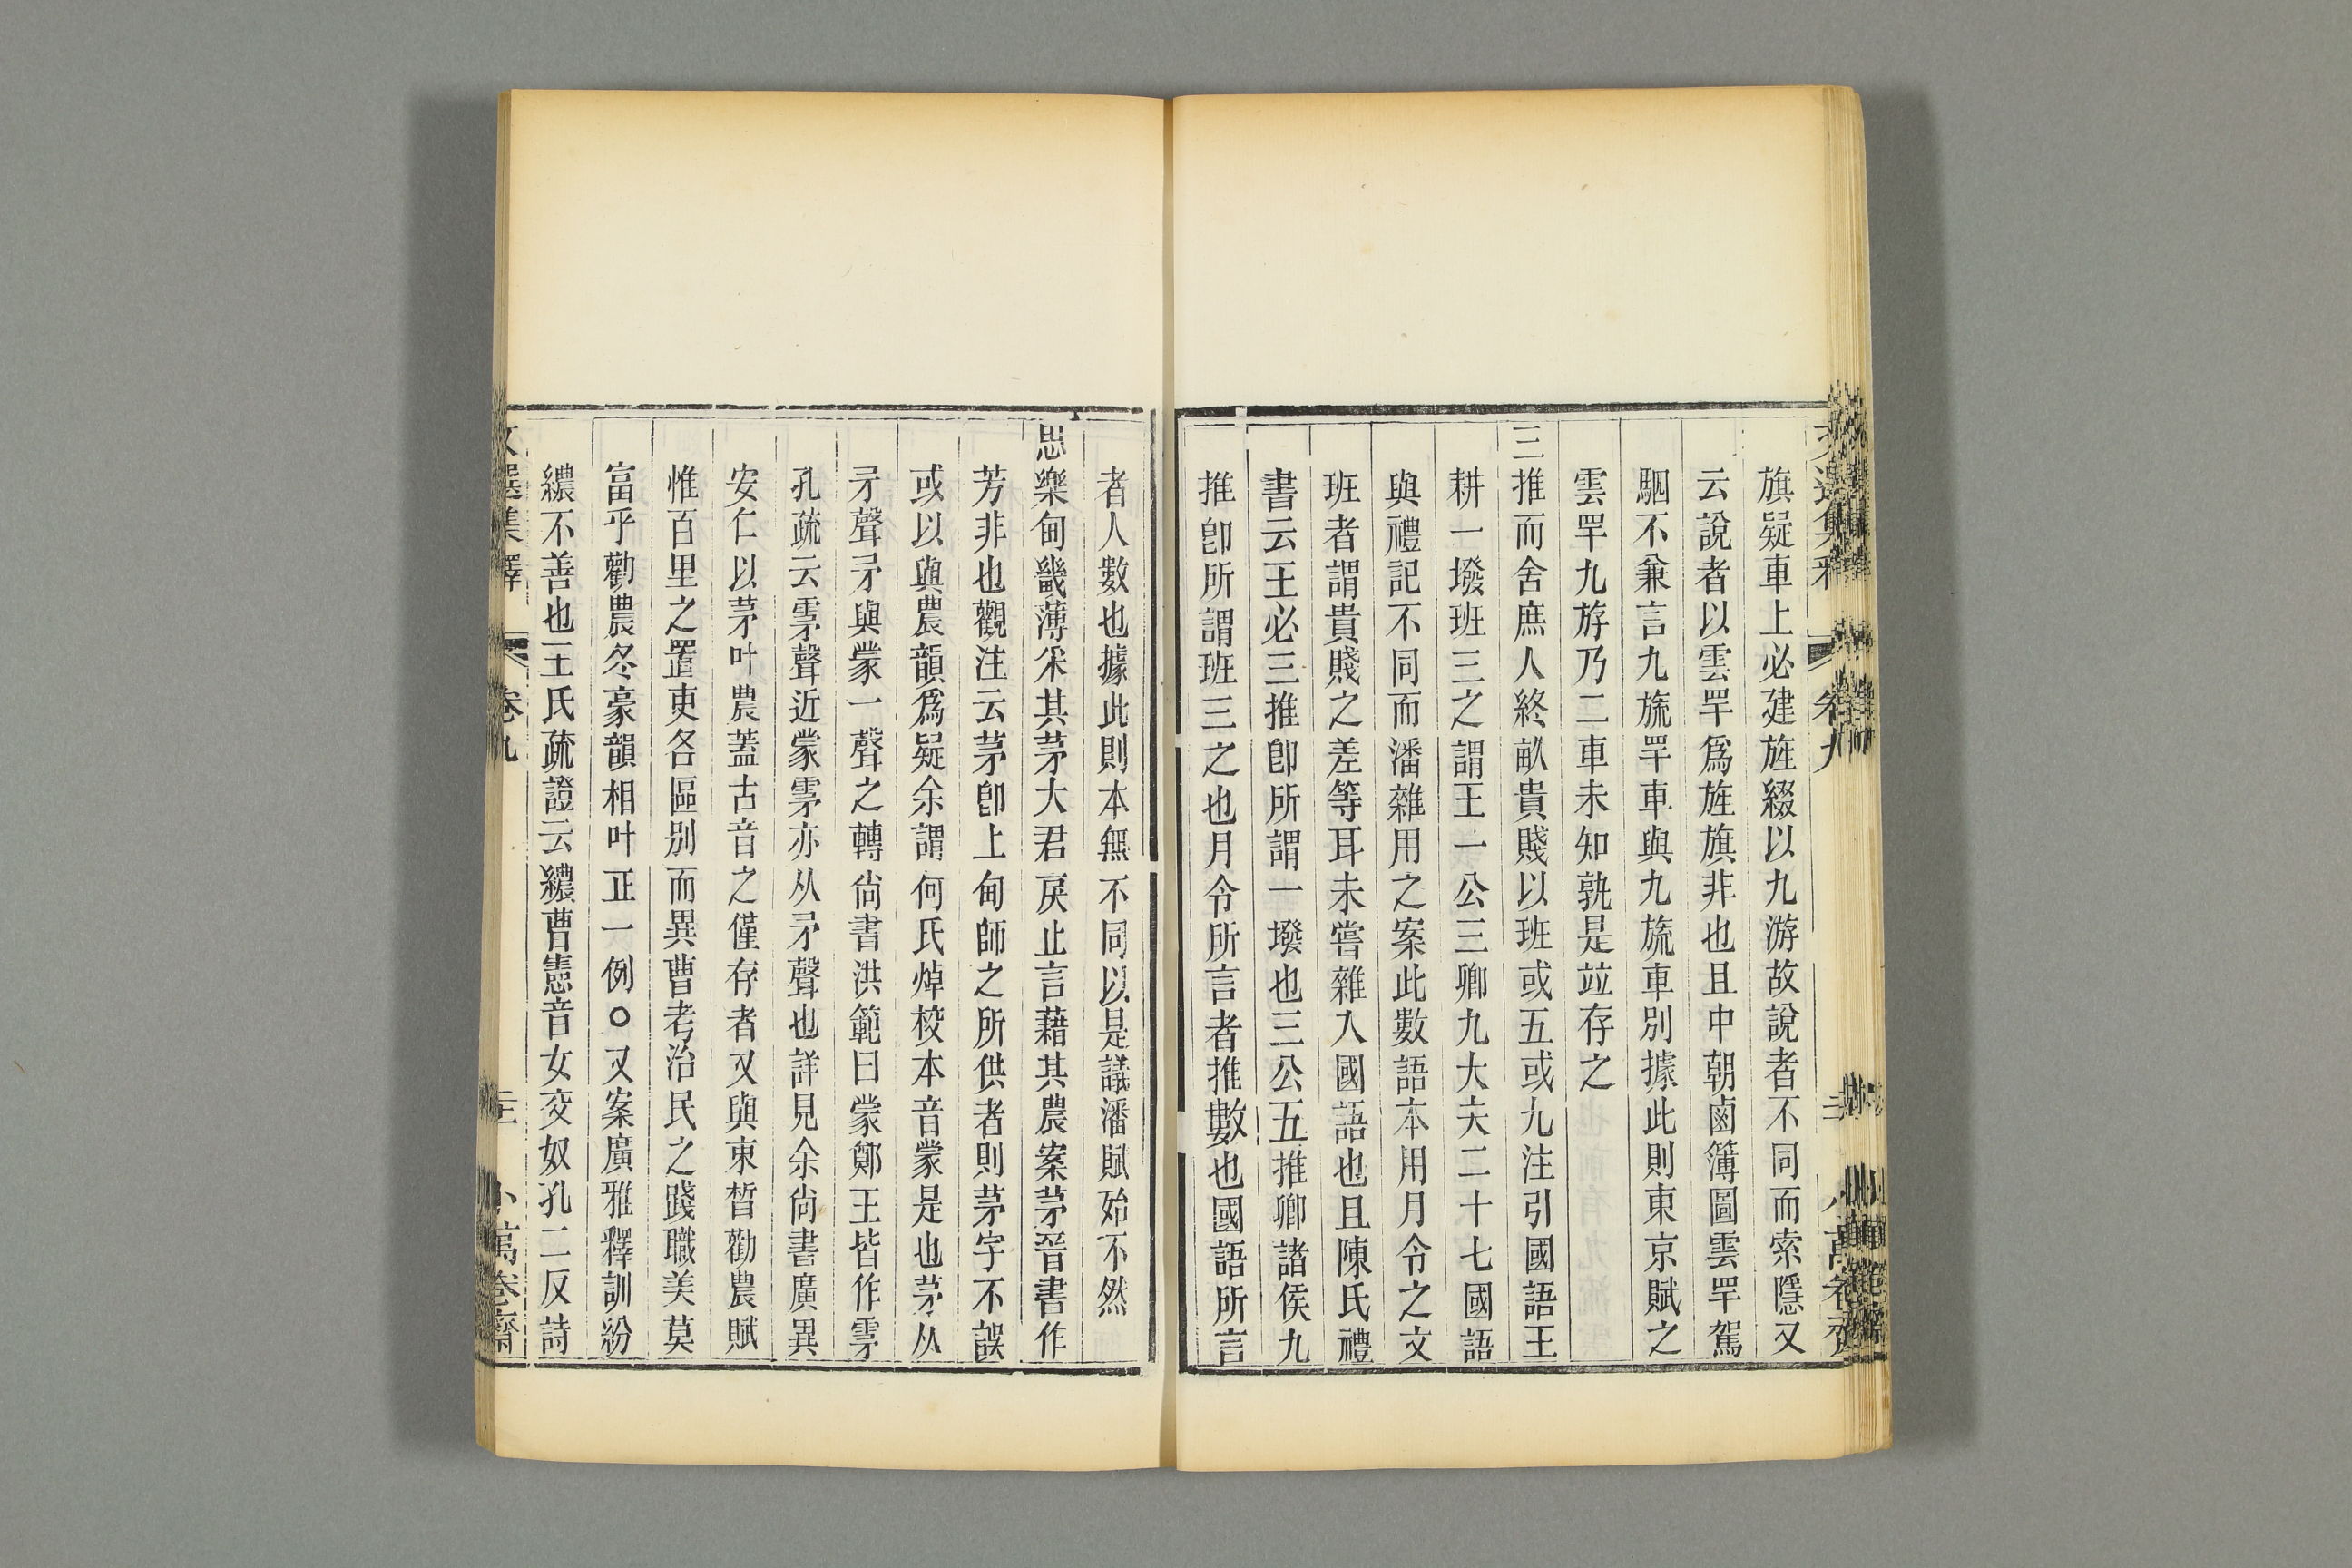 旗疑車上必建旌綴以九游故說者不同而索隱又
云說者以雲罕爲旌旗非也且中朝鹵簿圖雲罕駕
駟不兼言九旒罕車與九旒車別據此則東京賦之
雲罕九斿乃二車未知孰是竝存之
三推而舍庶人終畝貴賤以班或五或九注引國語王
耕一墢班三之謂王一公三卿九大夫二十七國語
與禮記不同而潘雜用之案此數語本用月令之文
班者謂貴賤之差等耳未嘗雜入國語也且陳氏禮
書云王必三推卽所謂一墢也三公五推卿諸侯九
推卽所謂班三之也月令所言者推數也國語所言
者人數也據此則本無不同以是議潘賦殆不然
思樂甸畿薄采其茅大君戾止言藉其農案茅晉書作
芳非也觀注云茅卽上甸師之所供者則茅字不誤
或以與農韻爲疑余謂何氏焯校本音蒙是也茅从
矛聲矛與蒙一聲之轉尙書洪範曰蒙鄭王皆作雺
孔疏云雺聲近蒙雺亦从矛聲也詳見余尙書廣異
安仁以茅叶農蓋古音之僅存者又與束晳勸農賦
惟百里之置吏各區別而異曹考治民之踐職美莫
富乎勸農冬豪韻相叶正一例○又案廣雅釋訓紛
繷不善也王氏疏證云繷曹憲音女交奴孔二反詩
文選集釋 卷九 小萬卷齋